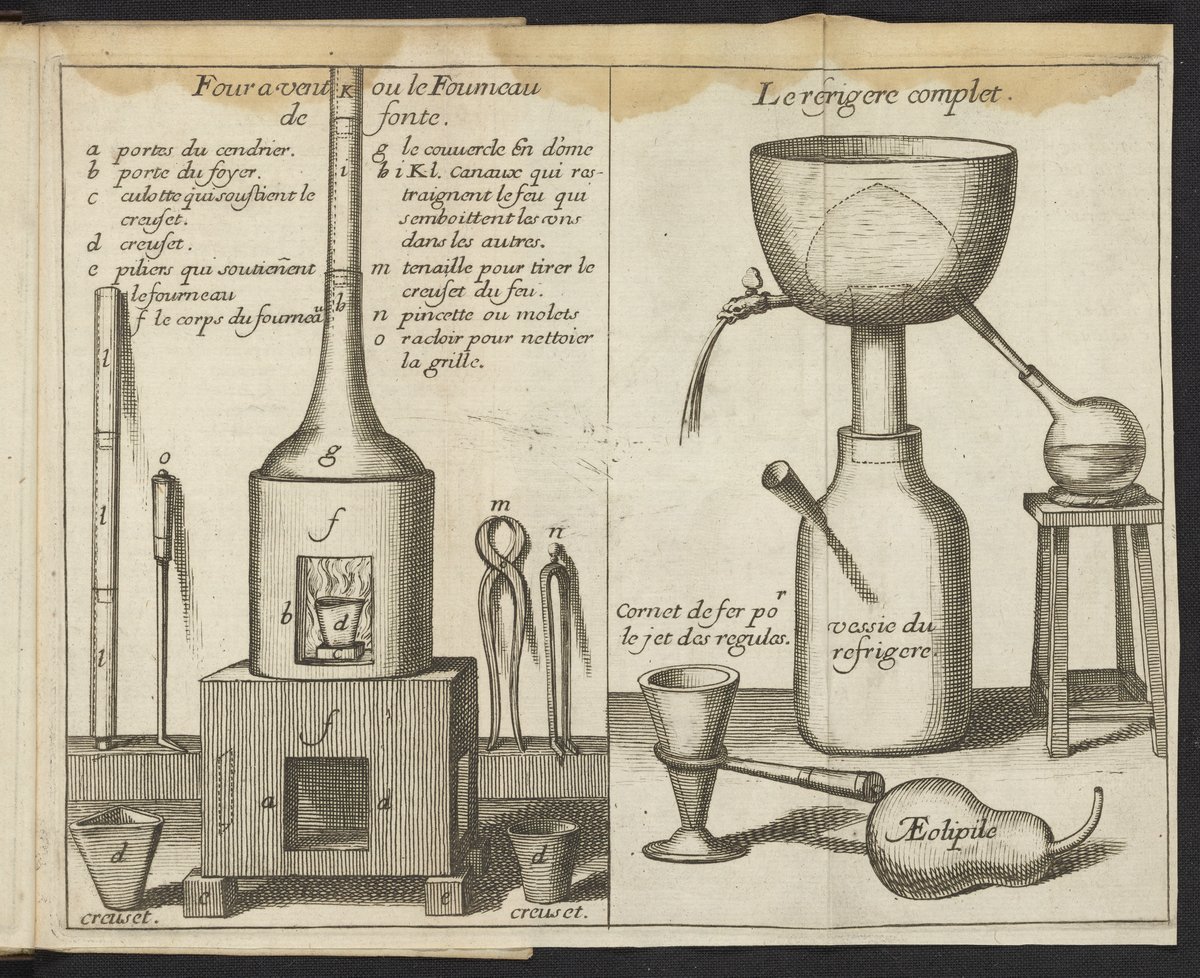 Four a vent K ou le Fourneau
de fonte.
a portes du cendrier.
b porte du foyer.
c culotte qui soustient le
creuset.
d creuset.
e piliers qui soutieñent
le fourneau
f le corps du fourneau
g le couuercle En dome
h i K l. Canaux qui res-
traignent le feu qui
semboittent les vns
dans les autres.
m tenaille pour tirer le
creuset du feu.
n pincette ou molets
o racloir pour nettoier
la grille.
i
h
l
l
l
o
g
f
m
n
b
d
c
f
a
a
d
d
e
e
creuset.
creuset.
Le refrigere complet.
Cornet de fer po r
le jet des regules.
vessie du
refrigere.
Æolipile